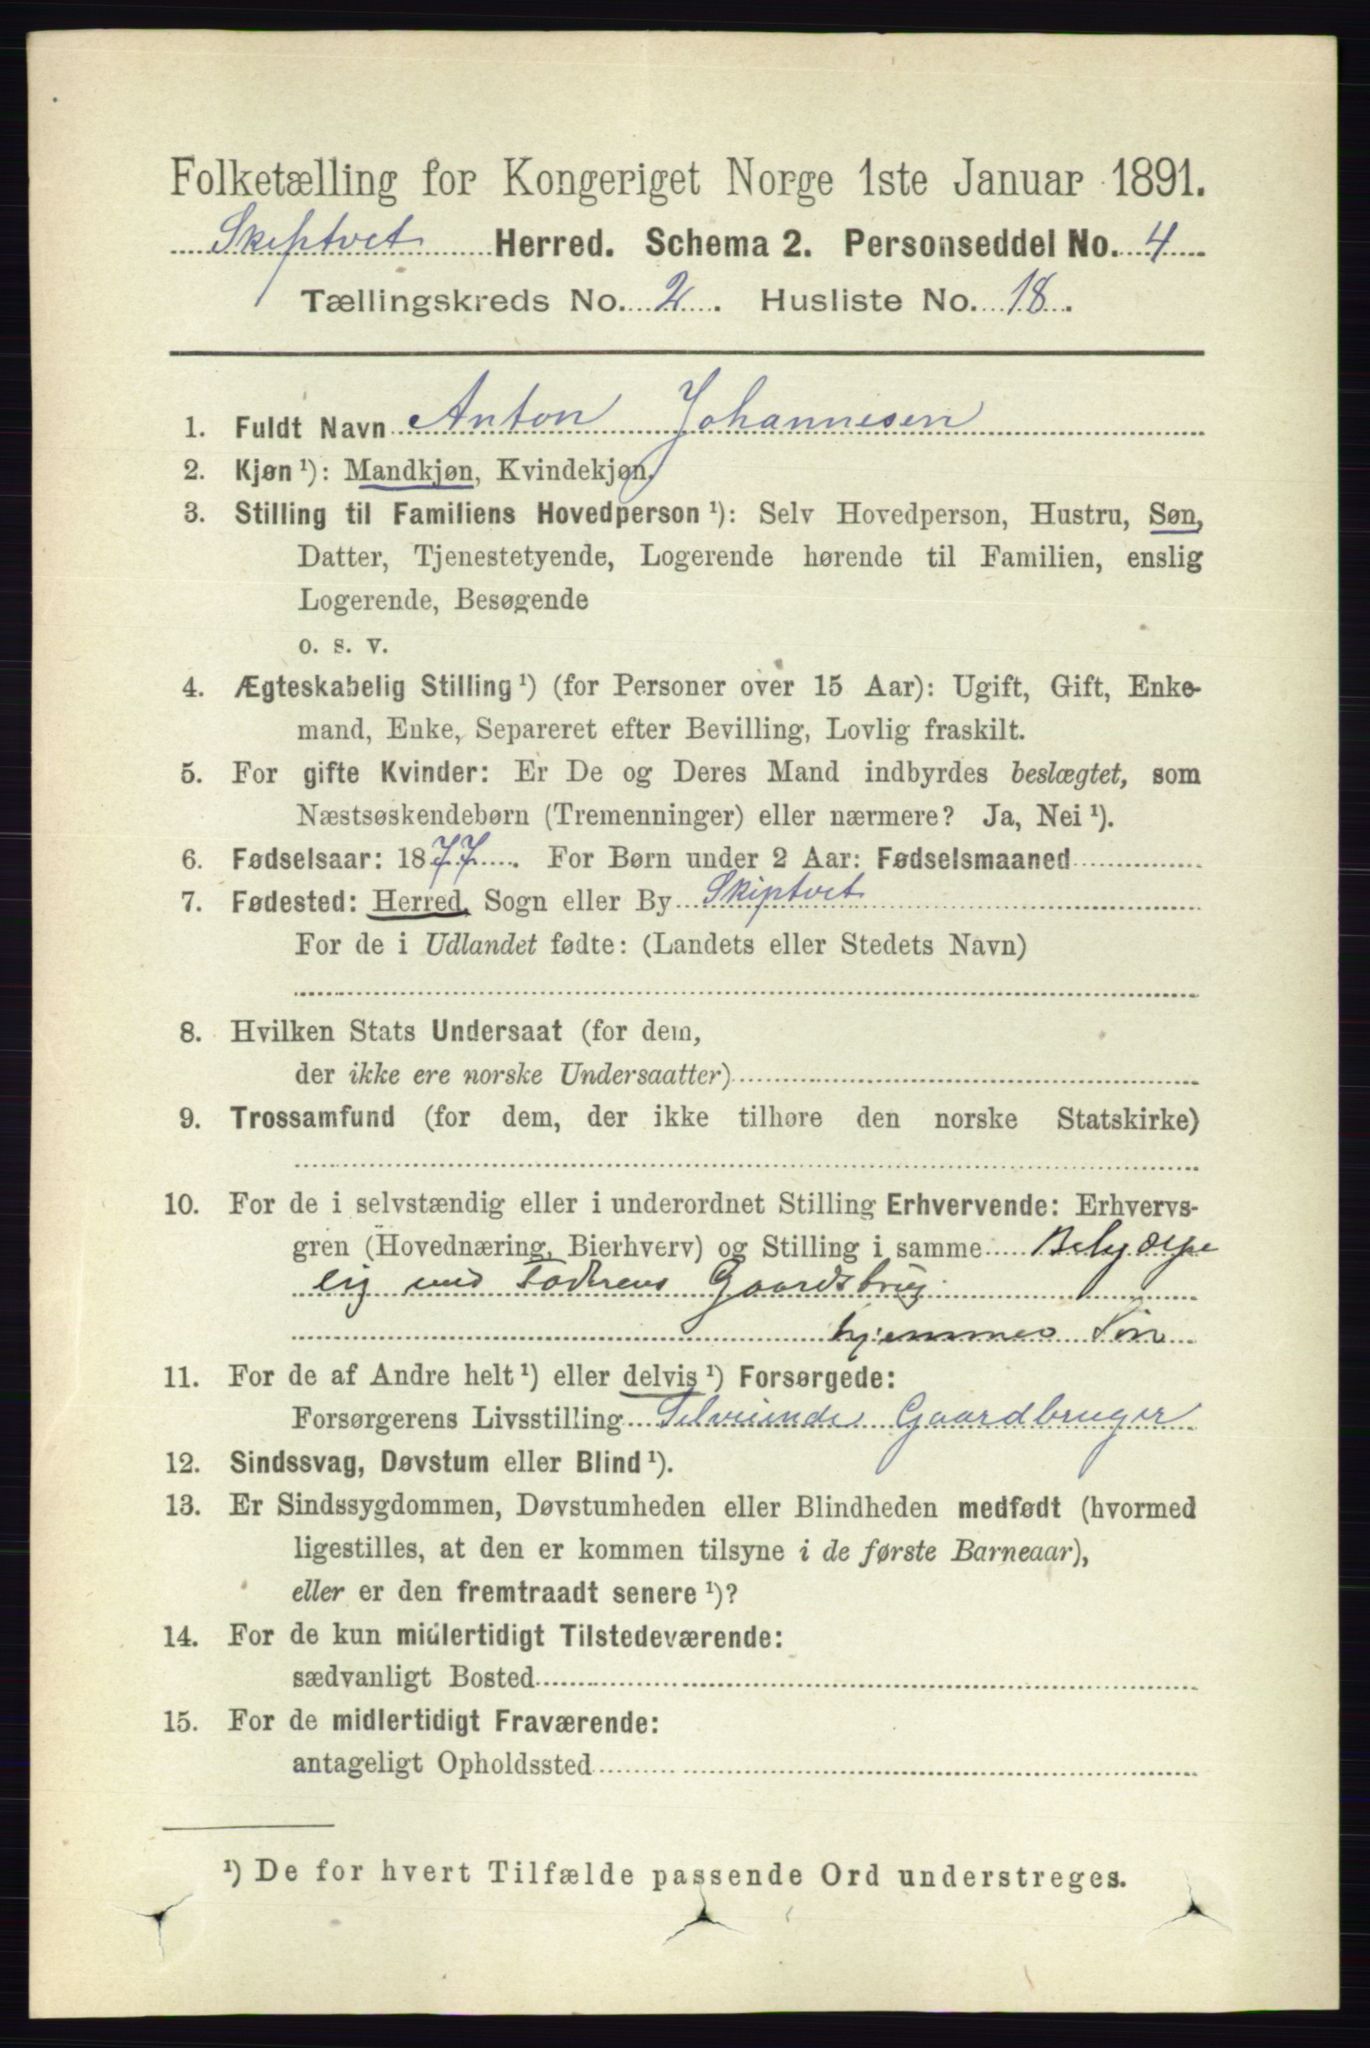 Folketælling for Kongeriget Norge 1ste Januar 1891.
Skiptvet Herred. Schema 2. Personseddel No. 4
Tællingskreds No. 2. Husliste No. 18.
1. Fuldt Navn Anton Johannesen
2. Kjøn ¹): Mandkjøn, Kvindekjøn.
3. Stilling til Familiens Hovedperson ¹): Selv Hovedperson, Hustru, Søn,
Datter, Tjenestetyende, Logerende hørende til Familien, enslig
Logerende, Besøgende
o. s. v.
4. Ægteskabelig Stilling ¹) (for Personer over 15 Aar): Ugift, Gift, Enke-
mand, Enke, Separeret efter Bevilling, Lovlig fraskilt.
5. For gifte Kvinder: Er De og Deres Mand indbyrdes beslægtet, som
Næstsøskendebørn (Tremenninger) eller nærmere? Ja, Nei ¹).
6. Fødselsaar: 1877. For Børn under 2 Aar: Fødselsmaaned
7. Fødested: Herred, Sogn eller By Skiptvet
For de i Udlandet fødte: (Landets eller Stedets Navn)
8. Hvilken Stats Undersaat (for dem,
der ikke ere norske Undersaatter)
9. Trossamfund (for dem, der ikke tilhøre den norske Statskirke)
10. For de i selvstændig eller i underordnet Stilling Erhvervende: Erhvervs-
gren (Hovednæring, Bierhverv) og Stilling i samme
Faderens Gaardsbrug
hjemmev Søn
11. For de af Andre helt ¹) eller delvis ¹) Forsørgede:
Forsørgerens Livsstilling Selveiende Gaardbruger
12. Sindssvag, Døvstum eller Blind ¹).
13. Er Sindssygdommen, Døvstumheden eller Blindheden medfødt (hvormed
ligestilles, at den er kommen tilsyne i de første Barneaar),
eller er den fremtraadt senere ¹)?
14. For de kun midlertidigt Tilstedeværende:
sædvanligt Bosted
15. For de midlertidigt Fraværende:
antageligt Opholdssted
¹) De for hvert Tilfælde passende Ord understreges.